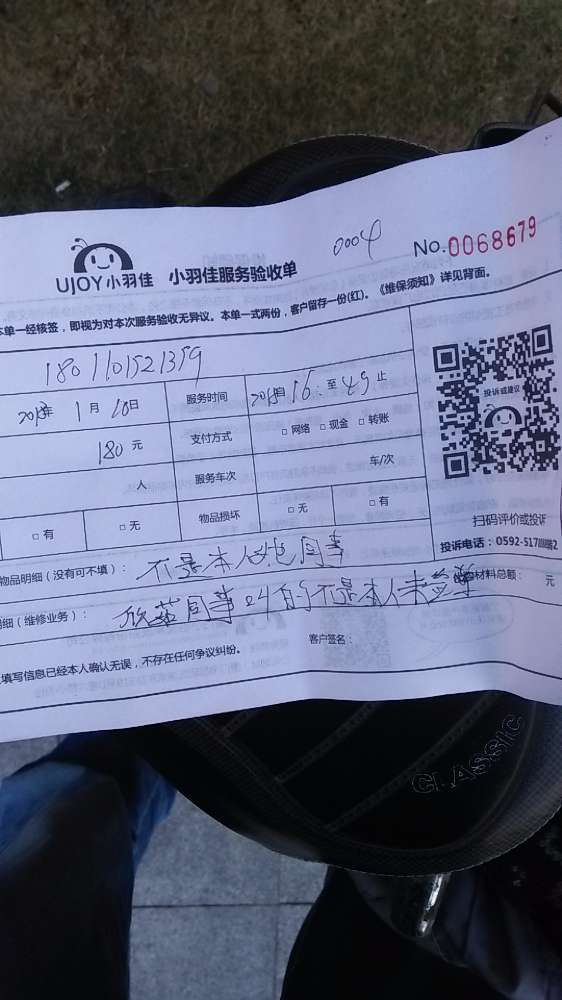 0004
No.0068679
UJOY小羽佳 小羽佳服务验收单
本单一经核签，即视为对本次服务验收无异议。本单一式两份，客户留存一份(红)。《维保须知》详见背面。
1801101521359
2018年 1月10日 服务时间 2018年 16 至 49止
投诉或建议
180元 支付方式 □网络 □现金 □转账
人 服务车次 车/次
□有 □无 物品损坏 □无 □有
扫码评价或投诉
投诉电话：0592-517
物品明细（没有可不填）： 不是本人他同事
明细（维修业务）： 同事叫的不是本人未签单 材料总额： 元
填写信息已经本人确认无误，不存在任何争议纠纷。 客户签名：
CLASSIC